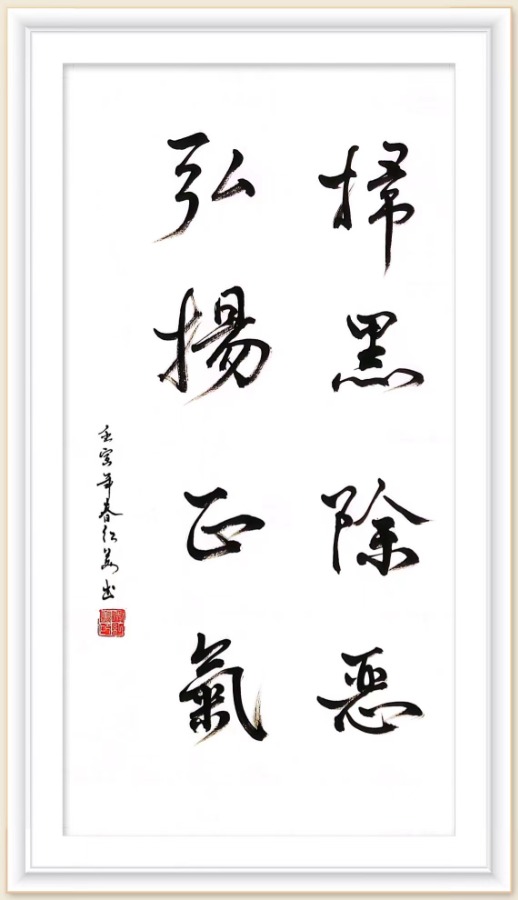 掃黑除惡
弘揚正氣
壬寅年春仁美书